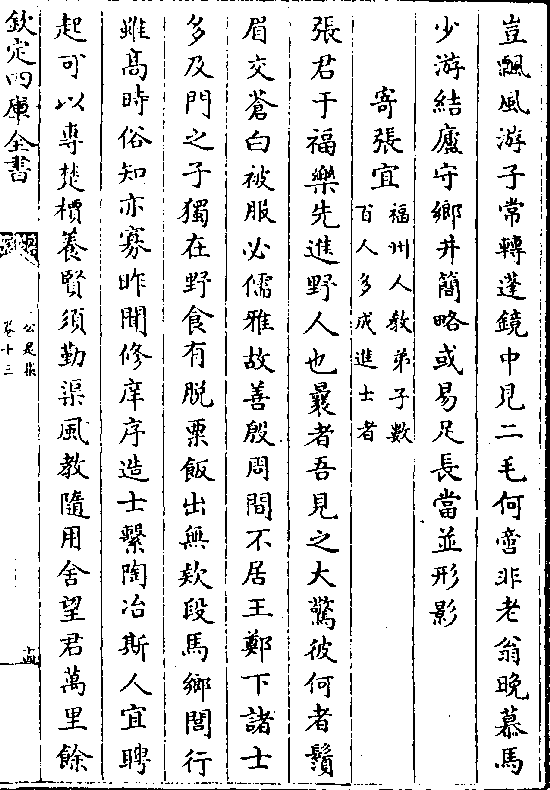 豈飄風游子常轉蓬鏡中見二毛何啻非老翁晚慕馬
少游結廬守鄉井簡略或易足長當並形影
寄張宜
福州人教弟子數
百人多成進士者
張君于福樂先進野人也曩者吾見之大驚彼何者鬚
眉交蒼白被服必儒雅故善殷周間不居王鄭下諸士
多及門之子獨在野食有脫粟飯出無欵段馬鄉閭行
雖高時俗知亦寡昨聞修庠序造士繫陶冶斯人宜聘
起可以專楚檟養賢須勤渠風教隨用舍望君萬里餘
欽定四庫全書
公是集
卷十三
十四